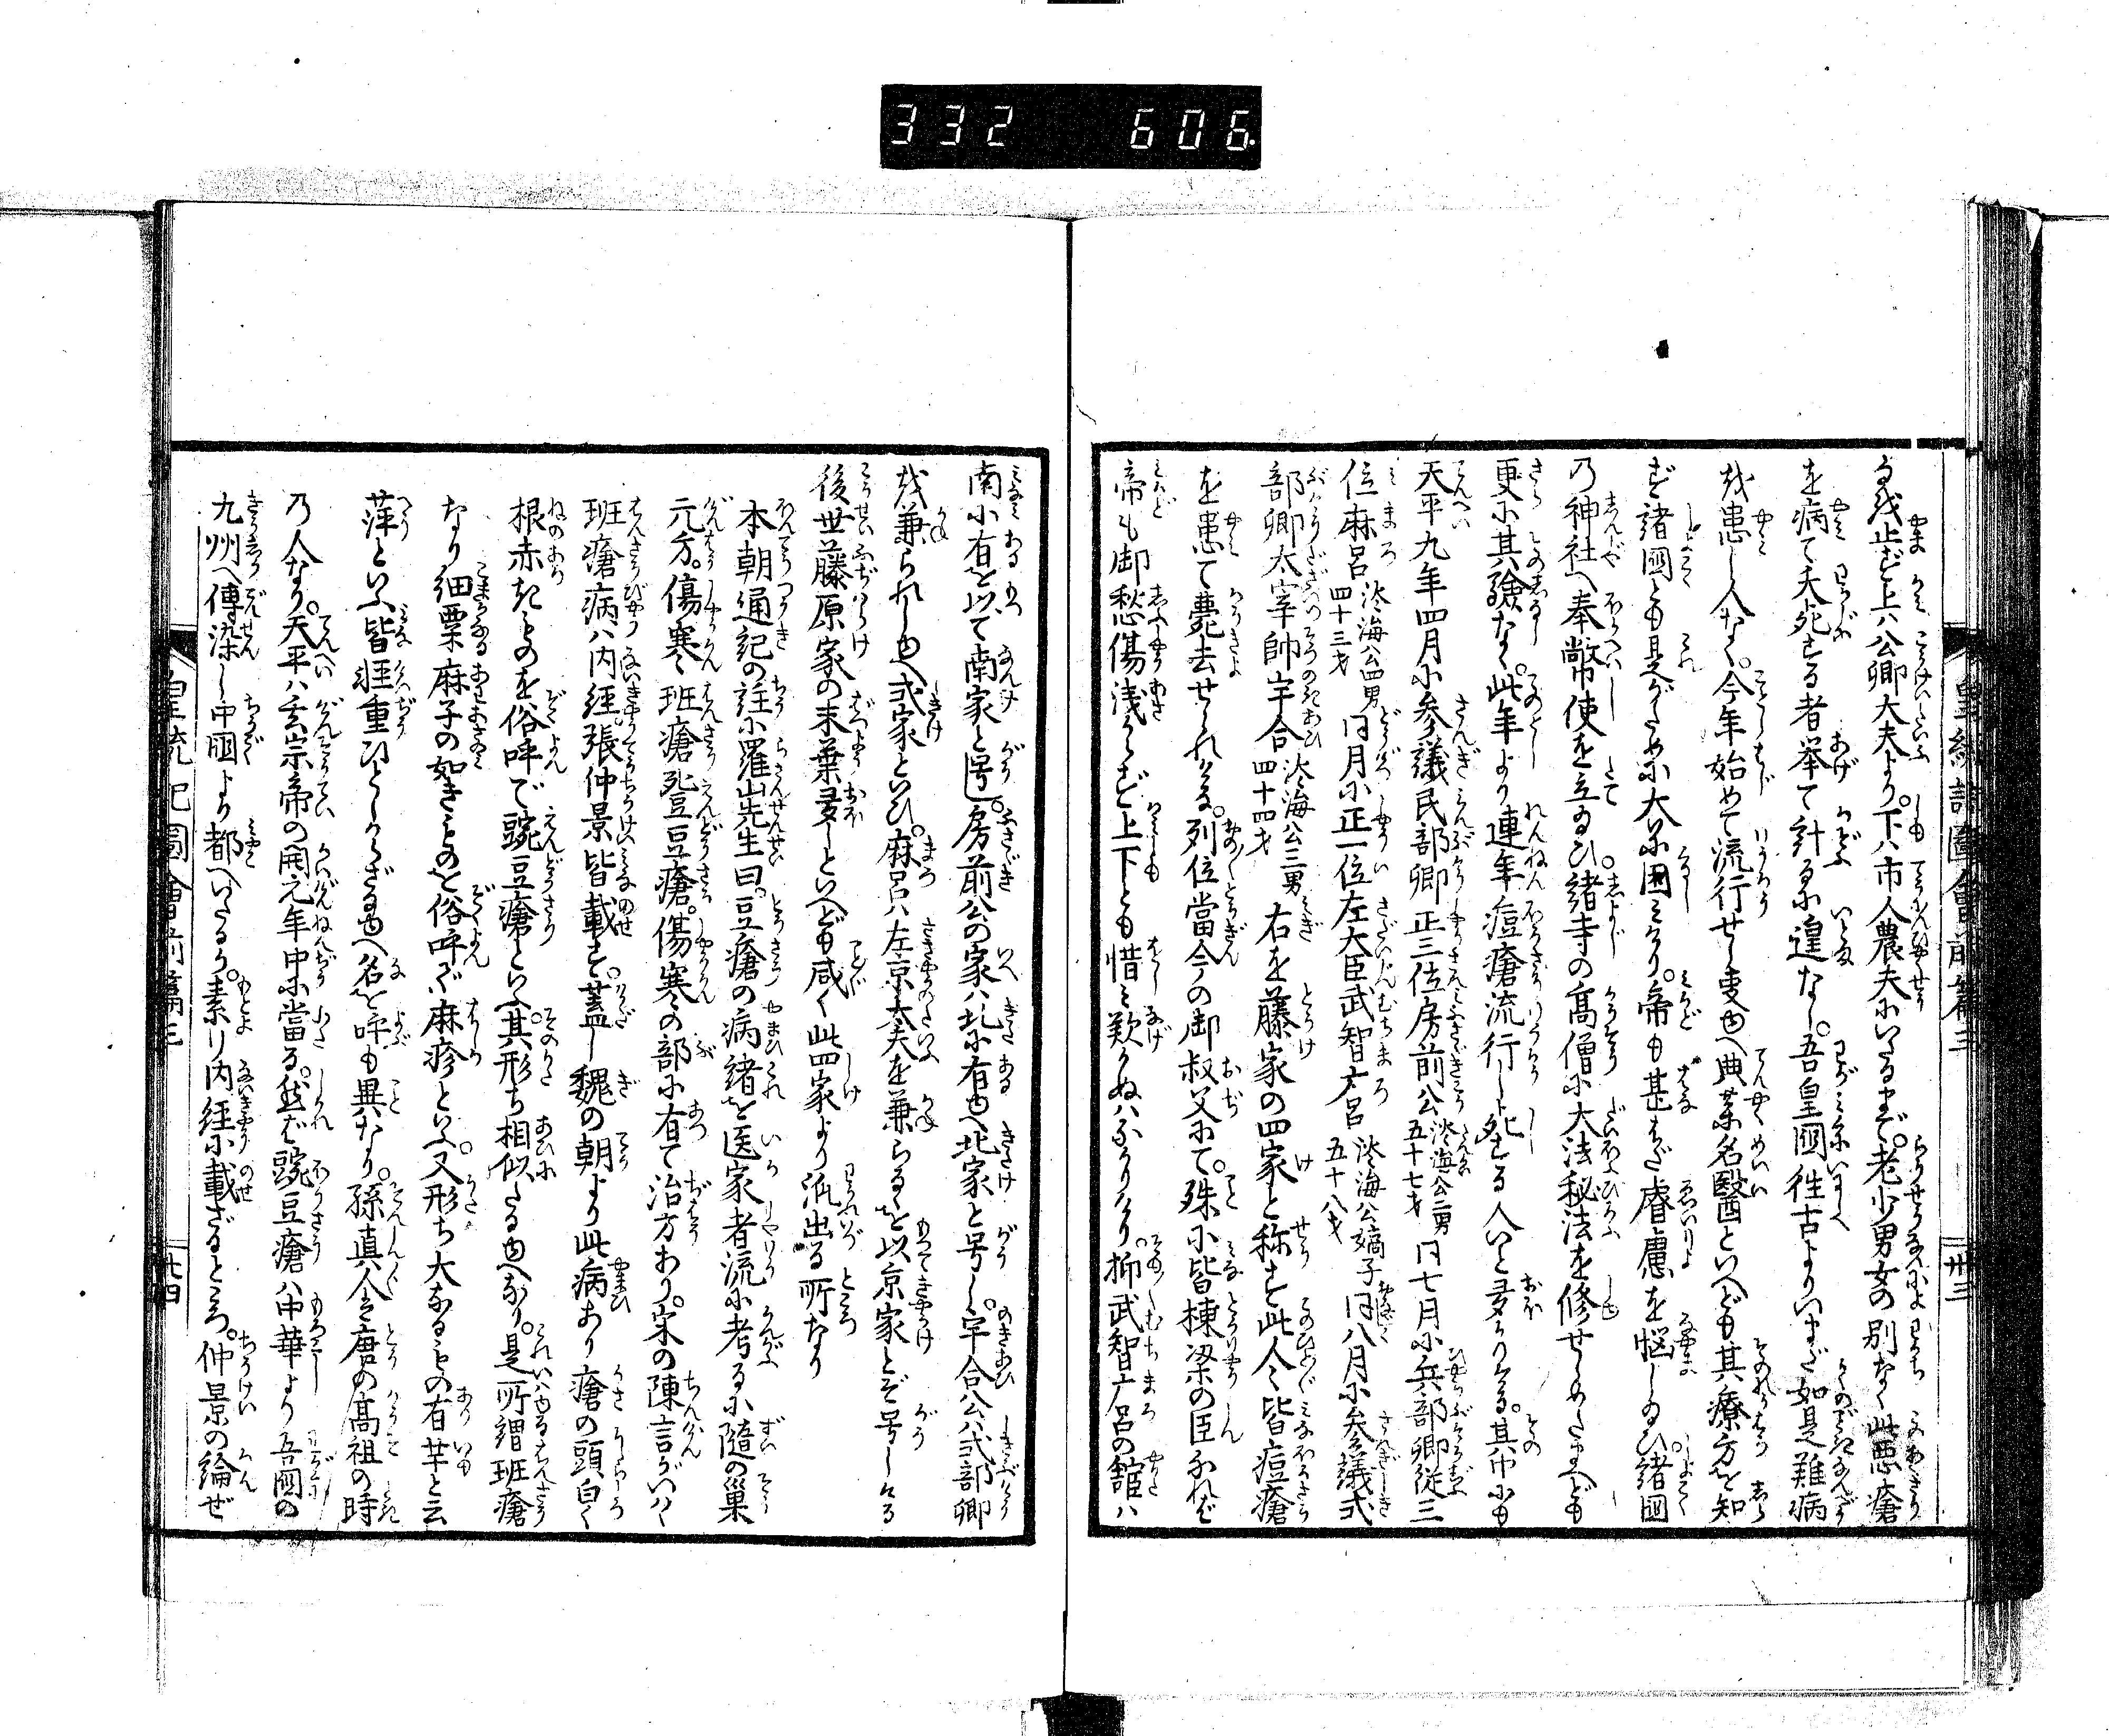 332 606.
皇統記圖會前篇三
卅三
る故止ず上ハ公卿大夫より。下ハ市人農夫にいたるまで。老少男女の別なく此悪瘡
を病て夭死する者挙て計るに遑なし。吾皇國往古よりいまだ如是難病
を患し人なく。今年始めて流行せし叓ゆへ典薬名醫といへども其療方を知
ず諸國とも是がために大に困みけり。帝も甚はだ睿慮を悩し玉ひ。諸國
の神社へ奉幣使を立玉ひ。諸寺の高僧に大法秘法を修せしめたまへども
更に其験なく。此年より連年痘瘡流行し死する人いと多かりける。其中にも
天平九年四月に参議民部卿正三位房前公 淡海公二男 五十七才 同七月に兵部卿従三
位麻呂 淡海公四男 四十三才 同月に正一位左大臣武智广呂 淡海公嫡子 五十八才 同八月に参議式
部卿太宰帥宇合 淡海公三男 四十四才 右を藤家の四家と称す此人々皆痘瘡
を患て薨去せられける。列位當今の御叔父にて。殊に皆棟梁の臣なれば
帝も御愁傷浅からず上下とも惜み歎かぬハなかりけり。抑武智广呂の舘ハ
南に有を以て南家と号し。房前公の家ハ北に有ゆへ北家と号し。宇合公ハ式部卿
を兼られしゆへ式家といひ。麻呂ハ左京大夫を兼らるゝを以京家とぞ号しける
後世藤原家の末葉多しといへども咸く此四家より流出る所なり
本朝通紀の註に羅山先生曰。豆瘡の病緒を医家者流に考るに隨の巣
元方。傷寒班瘡豌豆瘡。傷寒の部に有て治方あり。宋の陳言がいはく
班瘡病ハ内経。張仲景皆載ず。蓋し魏の朝より此病あり瘡の頭白く
根赤きものを俗呼で豌豆瘡といふ。其形ち相似たるゆへなり。是所謂班瘡
なり細粟麻子の如きものを俗呼で麻疹といふ。又形ち大なるもの有芋と云
萍といふ皆軽重ひとしからざるゆへ名を呼も異なり。孫真人ハ唐の高祖の時
の人なり。天平ハ玄宗帝の開元年中に當る。然ば豌豆瘡ハ中華より吾國の
九州へ傳染し中國より都へいたるか。素り内経に載ざるところ。仲景の論ぜ
皇統記圖會前篇三
卅四